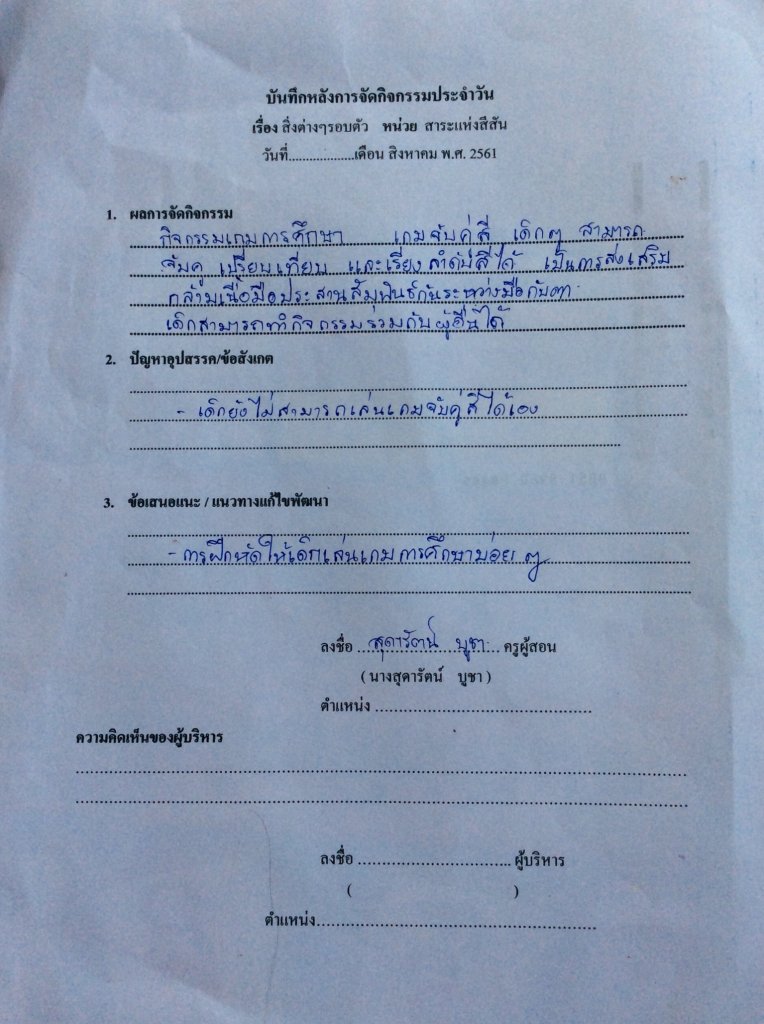 บันทึกหลังการจัดกิจกรรมประจำวัน
เรื่อง สิ่งต่างๆรอบตัว หน่วย สาระแห่งสีสัน
วันที่...................เดือน สิงหาคม พ.ศ. 2561
1. ผลการจัดกิจกรรม
กิจกรรมเกมการศึกษา เกมจับคู่สี เด็กๆ สามารถ
จับคู่ เปรียบเทียบ และเรียงลำดับสีได้ เป็นการส่งเสริม
กล้ามเนื้อมือประสานสัมพันธ์กันระหว่างมือกับตา
เด็กสามารถทำกิจกรรมรวมกับผู้อื่นได้
2. ปัญหาอุปสรรค/ข้อสังเกต
- เด็กยังไม่สามารถเล่นเกมจับคู่สีได้เอง
3. ข้อเสนอแนะ / แนวทางแก้ไขพัฒนา
- การฝึกหัดให้เด็กเล่นเกมการศึกษาบ่อย ๆ
ลงชื่อ สุดารัตน์ บูชา ครูผู้สอน
( นางสุดารัตน์ บูชา )
ตำแหน่ง ................................................
ความคิดเห็นของผู้บริหาร
ลงชื่อ ................................... ผู้บริหาร
( )
ตำแหน่ง................................................................